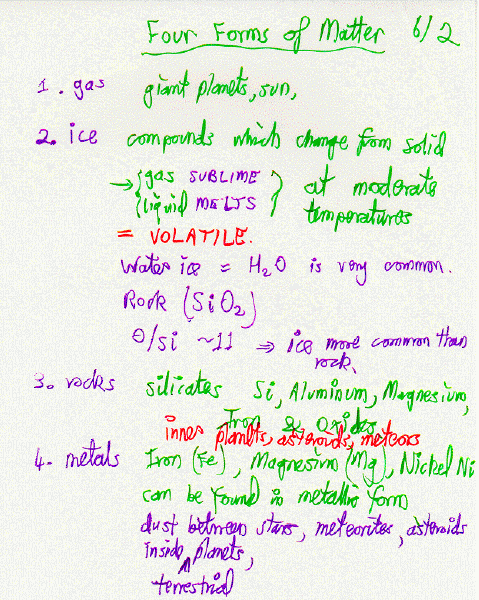 Four Forms of Matter 6/2
1. gas giant planets, sun,
2. ice compounds which change from solid
→ { gas SUBLIME } at moderate
{ liquid MELTS } temperatures
= VOLATILE.
Water ice = H2O is very common.
Rock (SiO2)
O/Si ~11 ⇒ ice more common than
rock.
3. rocks silicates Si, Aluminum, Magnesium,
Iron & Oxides
inner planets, asteroids, meteors
4. metals Iron (Fe), Magnesium (Mg), Nickel Ni
can be found in metallic form
dust between stars, meteorites, asteroids
inside ∧ planets,
terrestrial